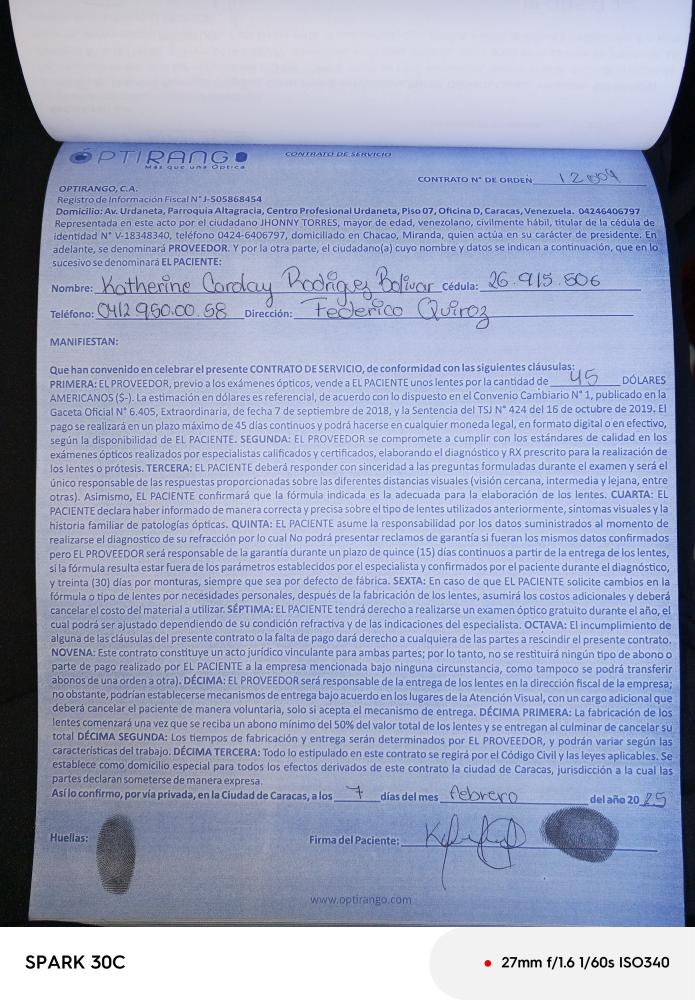 OPTIRANGO
Más que una Óptica
CONTRATO DE SERVICIO
CONTRATO N° DE ORDEN
OPTIRANGO, C.A.
Registro de Información Fiscal N° J-505868454
Domicilio: Av. Urdaneta, Parroquia Altagracia, Centro Profesional Urdaneta, Piso 07, Oficina D, Caracas, Venezuela. 04246406797
Representada en este acto por el ciudadano JHONNY TORRES, mayor de edad, venezolano, civilmente hábil, titular de la cédula de
identidad N° V-18348340, teléfono 0424-6406797, domiciliado en Chacao, Miranda, quien actúa en su carácter de presidente. En
adelante, se denominará PROVEEDOR. Y por la otra parte, el ciudadano(a) cuyo nombre y datos se indican a continuación, que en lo
sucesivo se denominará EL PACIENTE:
Nombre: Katherine Carolay Rodrigez Bolivar Cédula: 26.915.506
Teléfono: 0412 950.00.58 Dirección: Federico Quiroz
MANIFIESTAN:
Que han convenido en celebrar el presente CONTRATO DE SERVICIO, de conformidad con las siguientes cláusulas:
PRIMERA: EL PROVEEDOR, previo a los exámenes ópticos, vende a EL PACIENTE unos lentes por la cantidad de 45 DÓLARES
AMERICANOS ($-). La estimación en dólares es referencial, de acuerdo con lo dispuesto en el Convenio Cambiario N° 1, publicado en la
Gaceta Oficial N° 6.405, Extraordinaria, de fecha 7 de septiembre de 2018, y la Sentencia del TSJ N° 424 del 16 de octubre de 2019. El
pago se realizará en un plazo máximo de 45 días continuos y podrá hacerse en cualquier moneda legal, en formato digital o en efectivo,
según la disponibilidad de EL PACIENTE. SEGUNDA: EL PROVEEDOR se compromete a cumplir con los estándares de calidad en los
exámenes ópticos realizados por especialistas calificados y certificados, elaborando el diagnóstico y RX prescrito para la realización de
los lentes o prótesis. TERCERA: EL PACIENTE deberá responder con sinceridad a las preguntas formuladas durante el examen y será el
único responsable de las respuestas proporcionadas sobre las diferentes distancias visuales (visión cercana, intermedia y lejana, entre
otras). Asimismo, EL PACIENTE confirmará que la fórmula indicada es la adecuada para la elaboración de los lentes. CUARTA: EL
PACIENTE declara haber informado de manera correcta y precisa sobre el tipo de lentes utilizados anteriormente, síntomas visuales y la
historia familiar de patologías ópticas. QUINTA: EL PACIENTE asume la responsabilidad por los datos suministrados al momento de
realizarse el diagnostico de su refracción por lo cual No podrá presentar reclamos de garantía si fueran los mismos datos confirmados
pero EL PROVEEDOR será responsable de la garantía durante un plazo de quince (15) días continuos a partir de la entrega de los lentes,
si la fórmula resulta estar fuera de los parámetros establecidos por el especialista y confirmados por el paciente durante el diagnóstico,
y treinta (30) días por monturas, siempre que sea por defecto de fábrica. SEXTA: En caso de que EL PACIENTE solicite cambios en la
fórmula o tipo de lentes por necesidades personales, después de la fabricación de los lentes, asumirá los costos adicionales y deberá
cancelar el costo del material a utilizar. SÉPTIMA: EL PACIENTE tendrá derecho a realizarse un examen óptico gratuito durante el año, el
cual podrá ser ajustado dependiendo de su condición refractiva y de las indicaciones del especialista. OCTAVA: El incumplimiento de
alguna de las cláusulas del presente contrato o la falta de pago dará derecho a cualquiera de las partes a rescindir el presente contrato.
NOVENA: Este contrato constituye un acto jurídico vinculante para ambas partes; por lo tanto, no se restituirá ningún tipo de abono o
parte de pago realizado por EL PACIENTE a la empresa mencionada bajo ninguna circunstancia, como tampoco se podrá transferir
abonos de una orden a otra). DÉCIMA: EL PROVEEDOR será responsable de la entrega de los lentes en la dirección fiscal de la empresa;
no obstante, podrían establecerse mecanismos de entrega bajo acuerdo en los lugares de la Atención Visual, con un cargo adicional que
deberá cancelar el paciente de manera voluntaria, solo si acepta el mecanismo de entrega. DÉCIMA PRIMERA: La fabricación de los
lentes comenzará una vez que se reciba un abono mínimo del 50% del valor total de los lentes y se entregan al culminar de cancelar su
total DÉCIMA SEGUNDA: Los tiempos de fabricación y entrega serán determinados por EL PROVEEDOR, y podrán variar según las
características del trabajo. DÉCIMA TERCERA: Todo lo estipulado en este contrato se regirá por el Código Civil y las leyes aplicables. Se
establece como domicilio especial para todos los efectos derivados de este contrato la ciudad de Caracas, jurisdicción a la cual las
partes declaran someterse de manera expresa.
Así lo confirmo, por vía privada, en la Ciudad de Caracas, a los 7 días del mes febrero del año 20 25
Huellas:
Firma del Paciente:
www.optirango.com
SPARK 30C
27mm f/1.6 1/60s ISO340